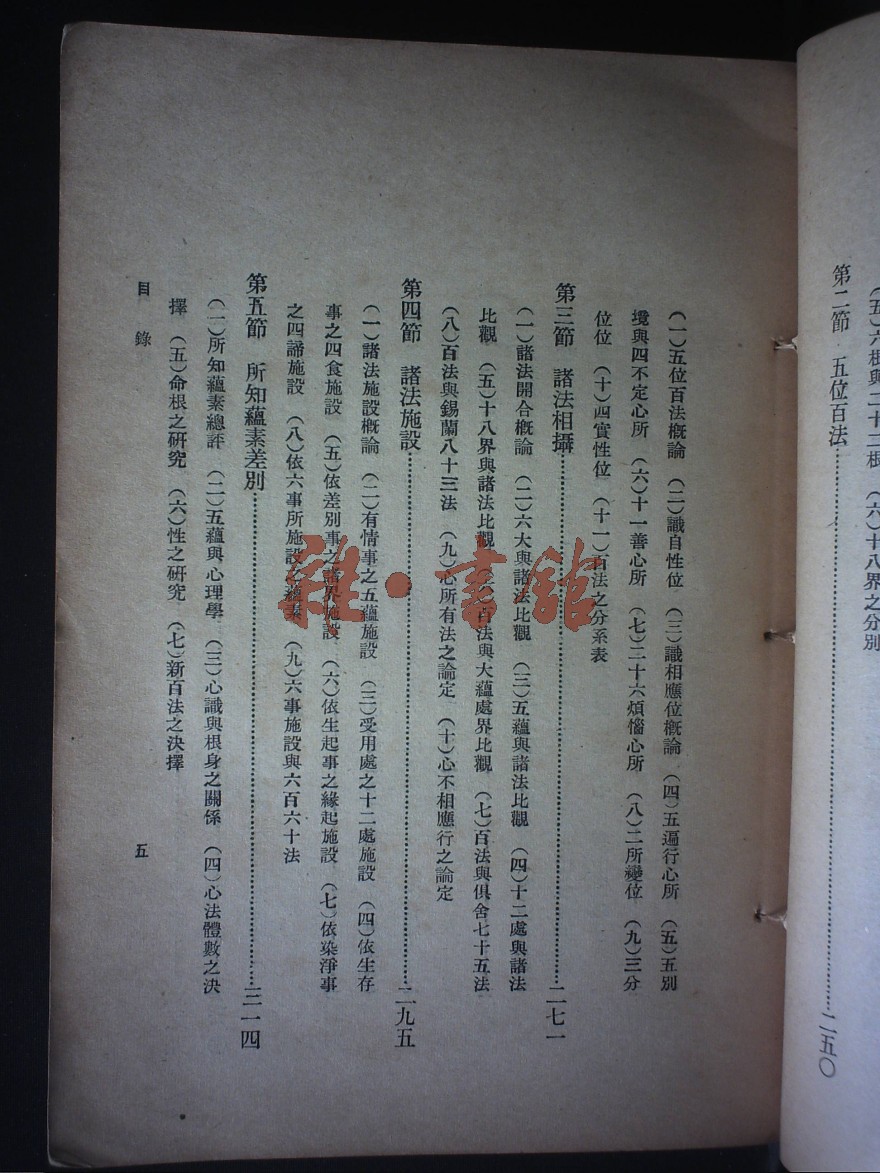 （五）六根與二十二根　（六）十八界之分別
第二節　五位百法…………二五〇
（一）五位百法概論　（二）識自性位　（三）識相應位概論　（四）五遍行心所　（五）五別
境與四不定心所　（六）十一善心所　（七）二十六煩惱心所　（八）二所變位　（九）三分
位位　（十）四實性位　（十一）百法之分系表
第三節　諸法相攝…………二七一
（一）諸法開合概論　（二）六大與諸法比觀　（三）五蘊與諸法比觀　（四）十二處與諸法
比觀　（五）十八界與諸法比觀　（六）百法與大蘊處界比觀　（七）百法與俱舍七十五法
（八）百法與錫蘭八十三法　（九）心所有法之論定　（十）心不相應行之論定
第四節　諸法施設…………二九五
（一）諸法施設概論　（二）有情事之五蘊施設　（三）受用處之十二處施設　（四）依生存
事之四食施設　（五）依差別事之諸界施設　（六）依生起事之緣起施設　（七）依染淨事
之四諦施設　（八）依六事所施設之蘊素　（九）六事施設與六百六十法
第五節　所知蘊素差別…………三一四
（一）所知蘊素總評　（二）五蘊與心理學　（三）心識與根身之關係　（四）心法體數之決
擇　（五）命根之研究　（六）性之研究　（七）新百法之決擇
目錄　五
雜·書館